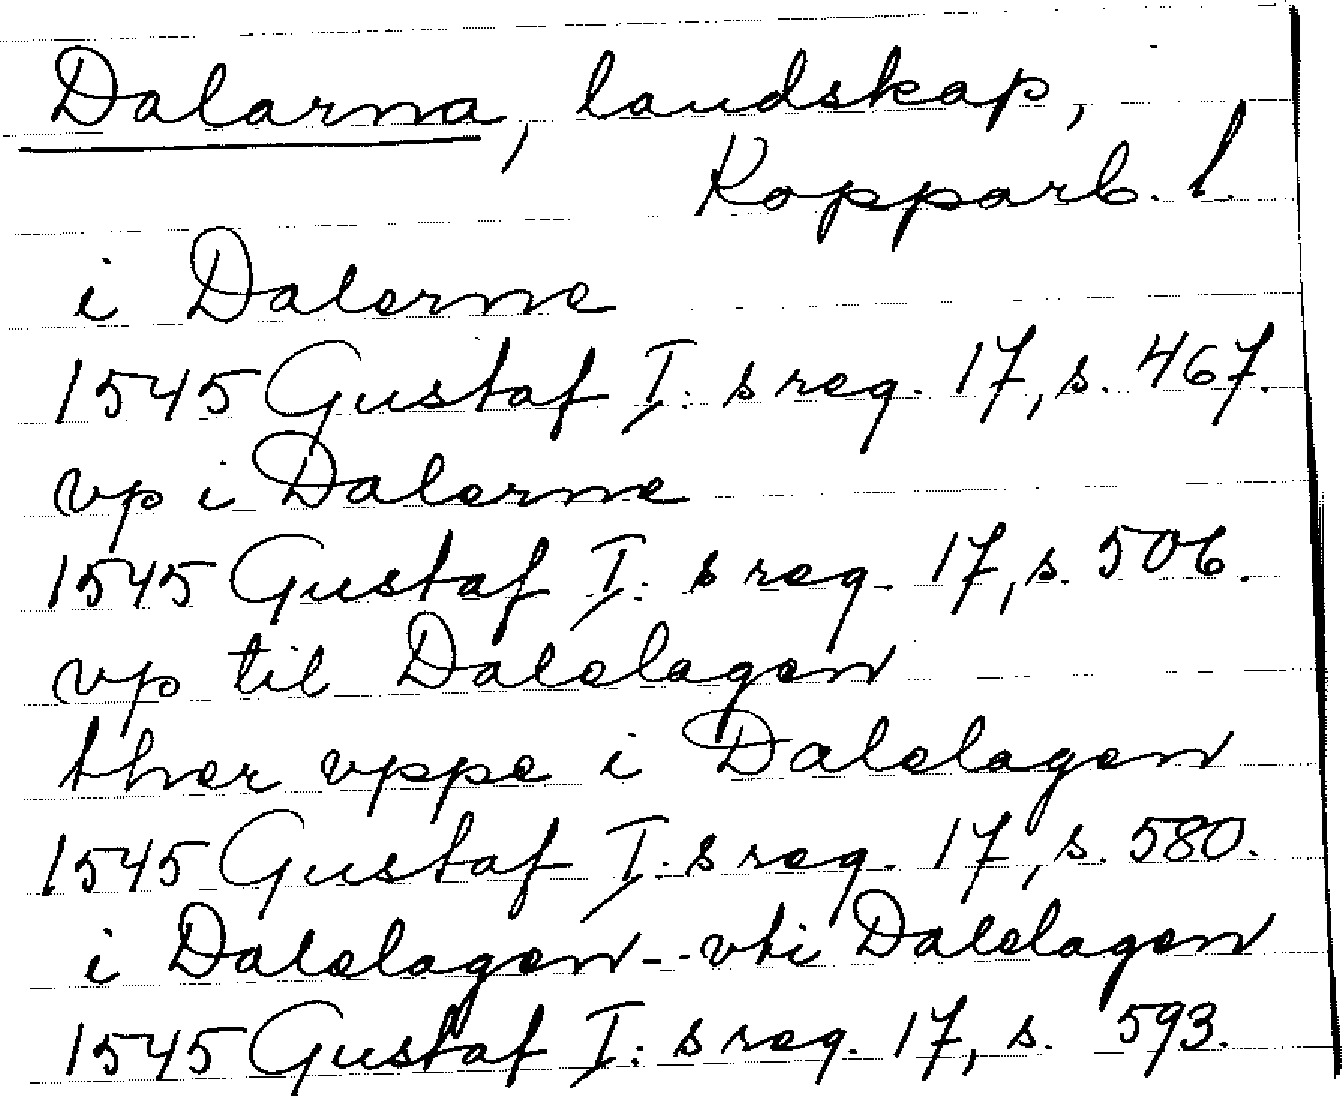 Dalarna, landskap,
Kopparb. l.
i Dalerne
1545 Gustaf I:s reg. 17, s. 467.
vp i Dalerne
1545 Gustaf I:s reg. 17, s. 506.
vp til Dalelagen
ther vppe i Dalelagen
1545 Gustaf I:s reg. 17, s. 580.
i Dalelagen - vti Dalelagen
1545 Gustaf I:s reg. 17, s. 593.